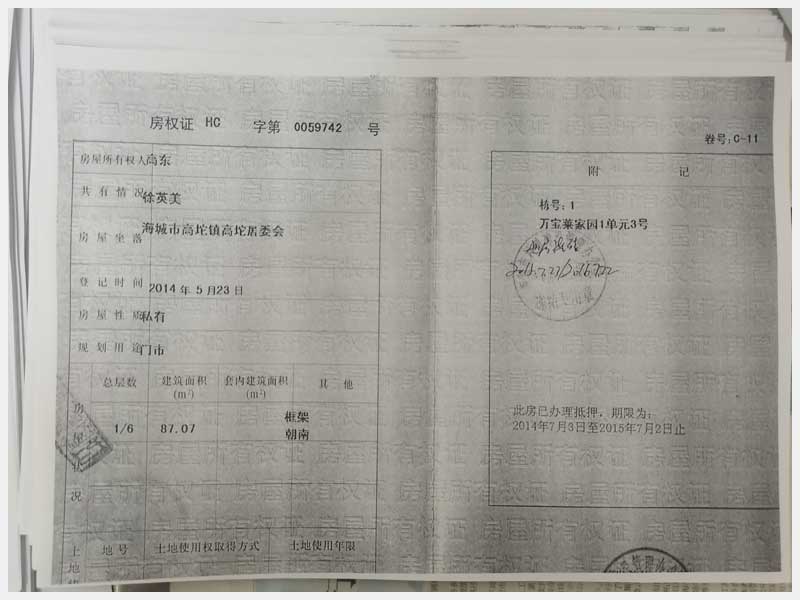 房权证 HC 字第 0059742 号
房屋所有权人 高东
共有情况 徐英美
房屋坐落 海城市高坨镇高坨居委会
登记时间 2014年5月23日
房屋性质 私有
规划用途 门市
房屋状况
总层数 建筑面积(m²) 套内建筑面积(m²) 其他
1/6 87.07 框架
朝南
土地 地号 土地使用权取得方式 土地使用年限
卷号:C-11
附 记
栋号:1
万宝莱家园1单元3号
此房已办理抵押,期限为:
2014年7月3日至2015年7月2日止